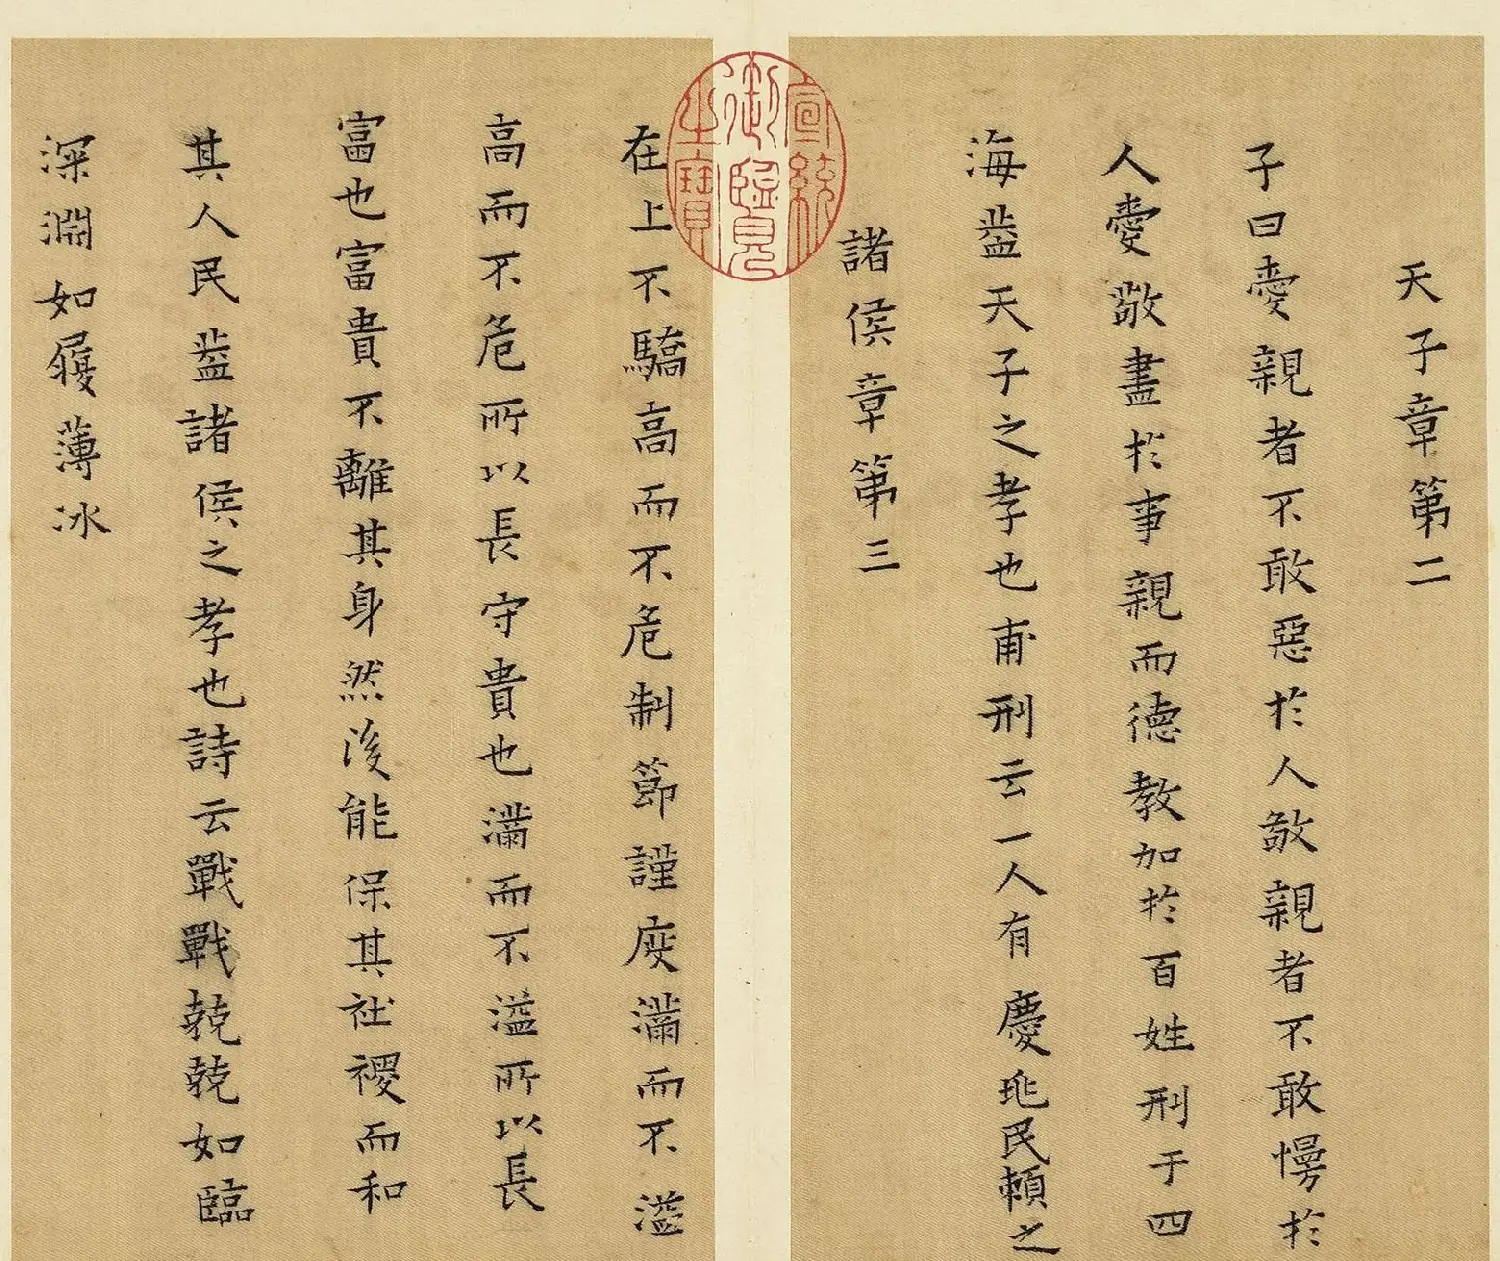 天子章第二
子曰愛親者不敢惡於人敬親者不敢慢於
人愛敬盡於事親而德教加於百姓刑于四
海蓋天子之孝也甫刑云一人有慶兆民賴之
諸侯章第三
宣統
御覽
之寶
在上不驕高而不危制節謹度滿而不溢
高而不危所以長守貴也滿而不溢所以長
富也富貴不離其身然後能保其社稷而和
其人民蓋諸侯之孝也詩云戰戰兢兢如臨
深淵如履薄冰